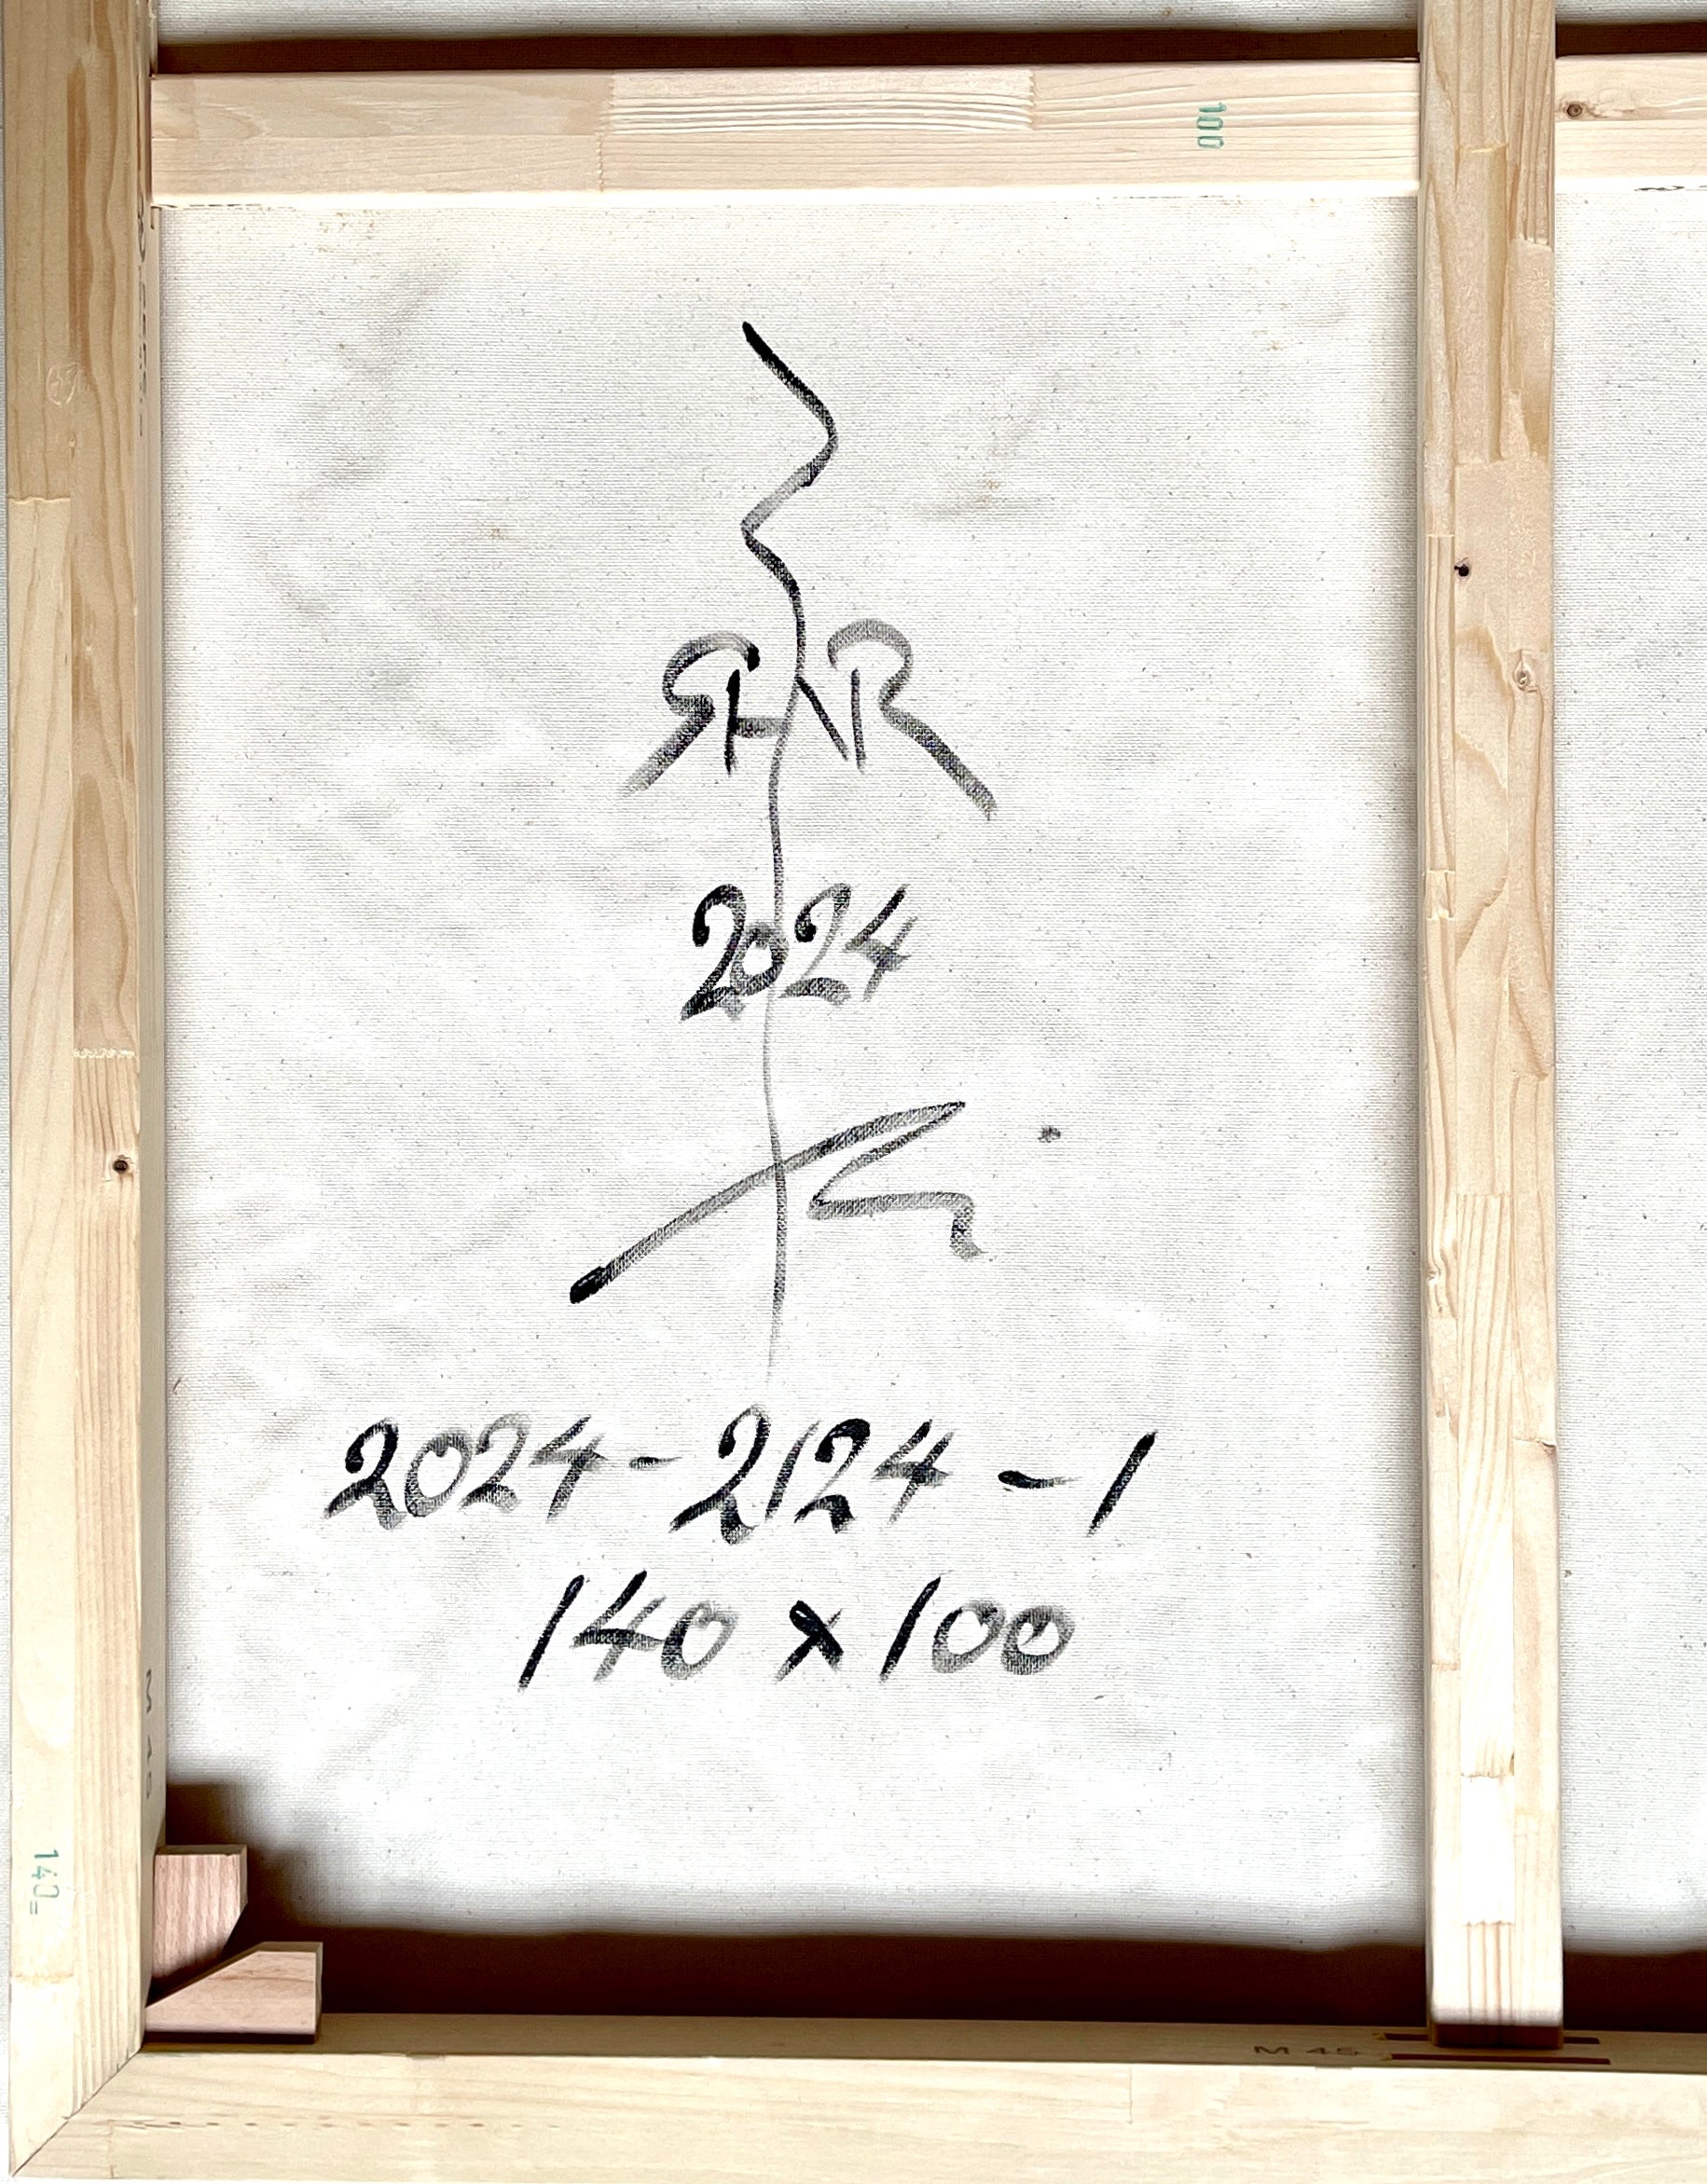 100
2024
2024-2124-1
140 x 100
140
M 45
M 45